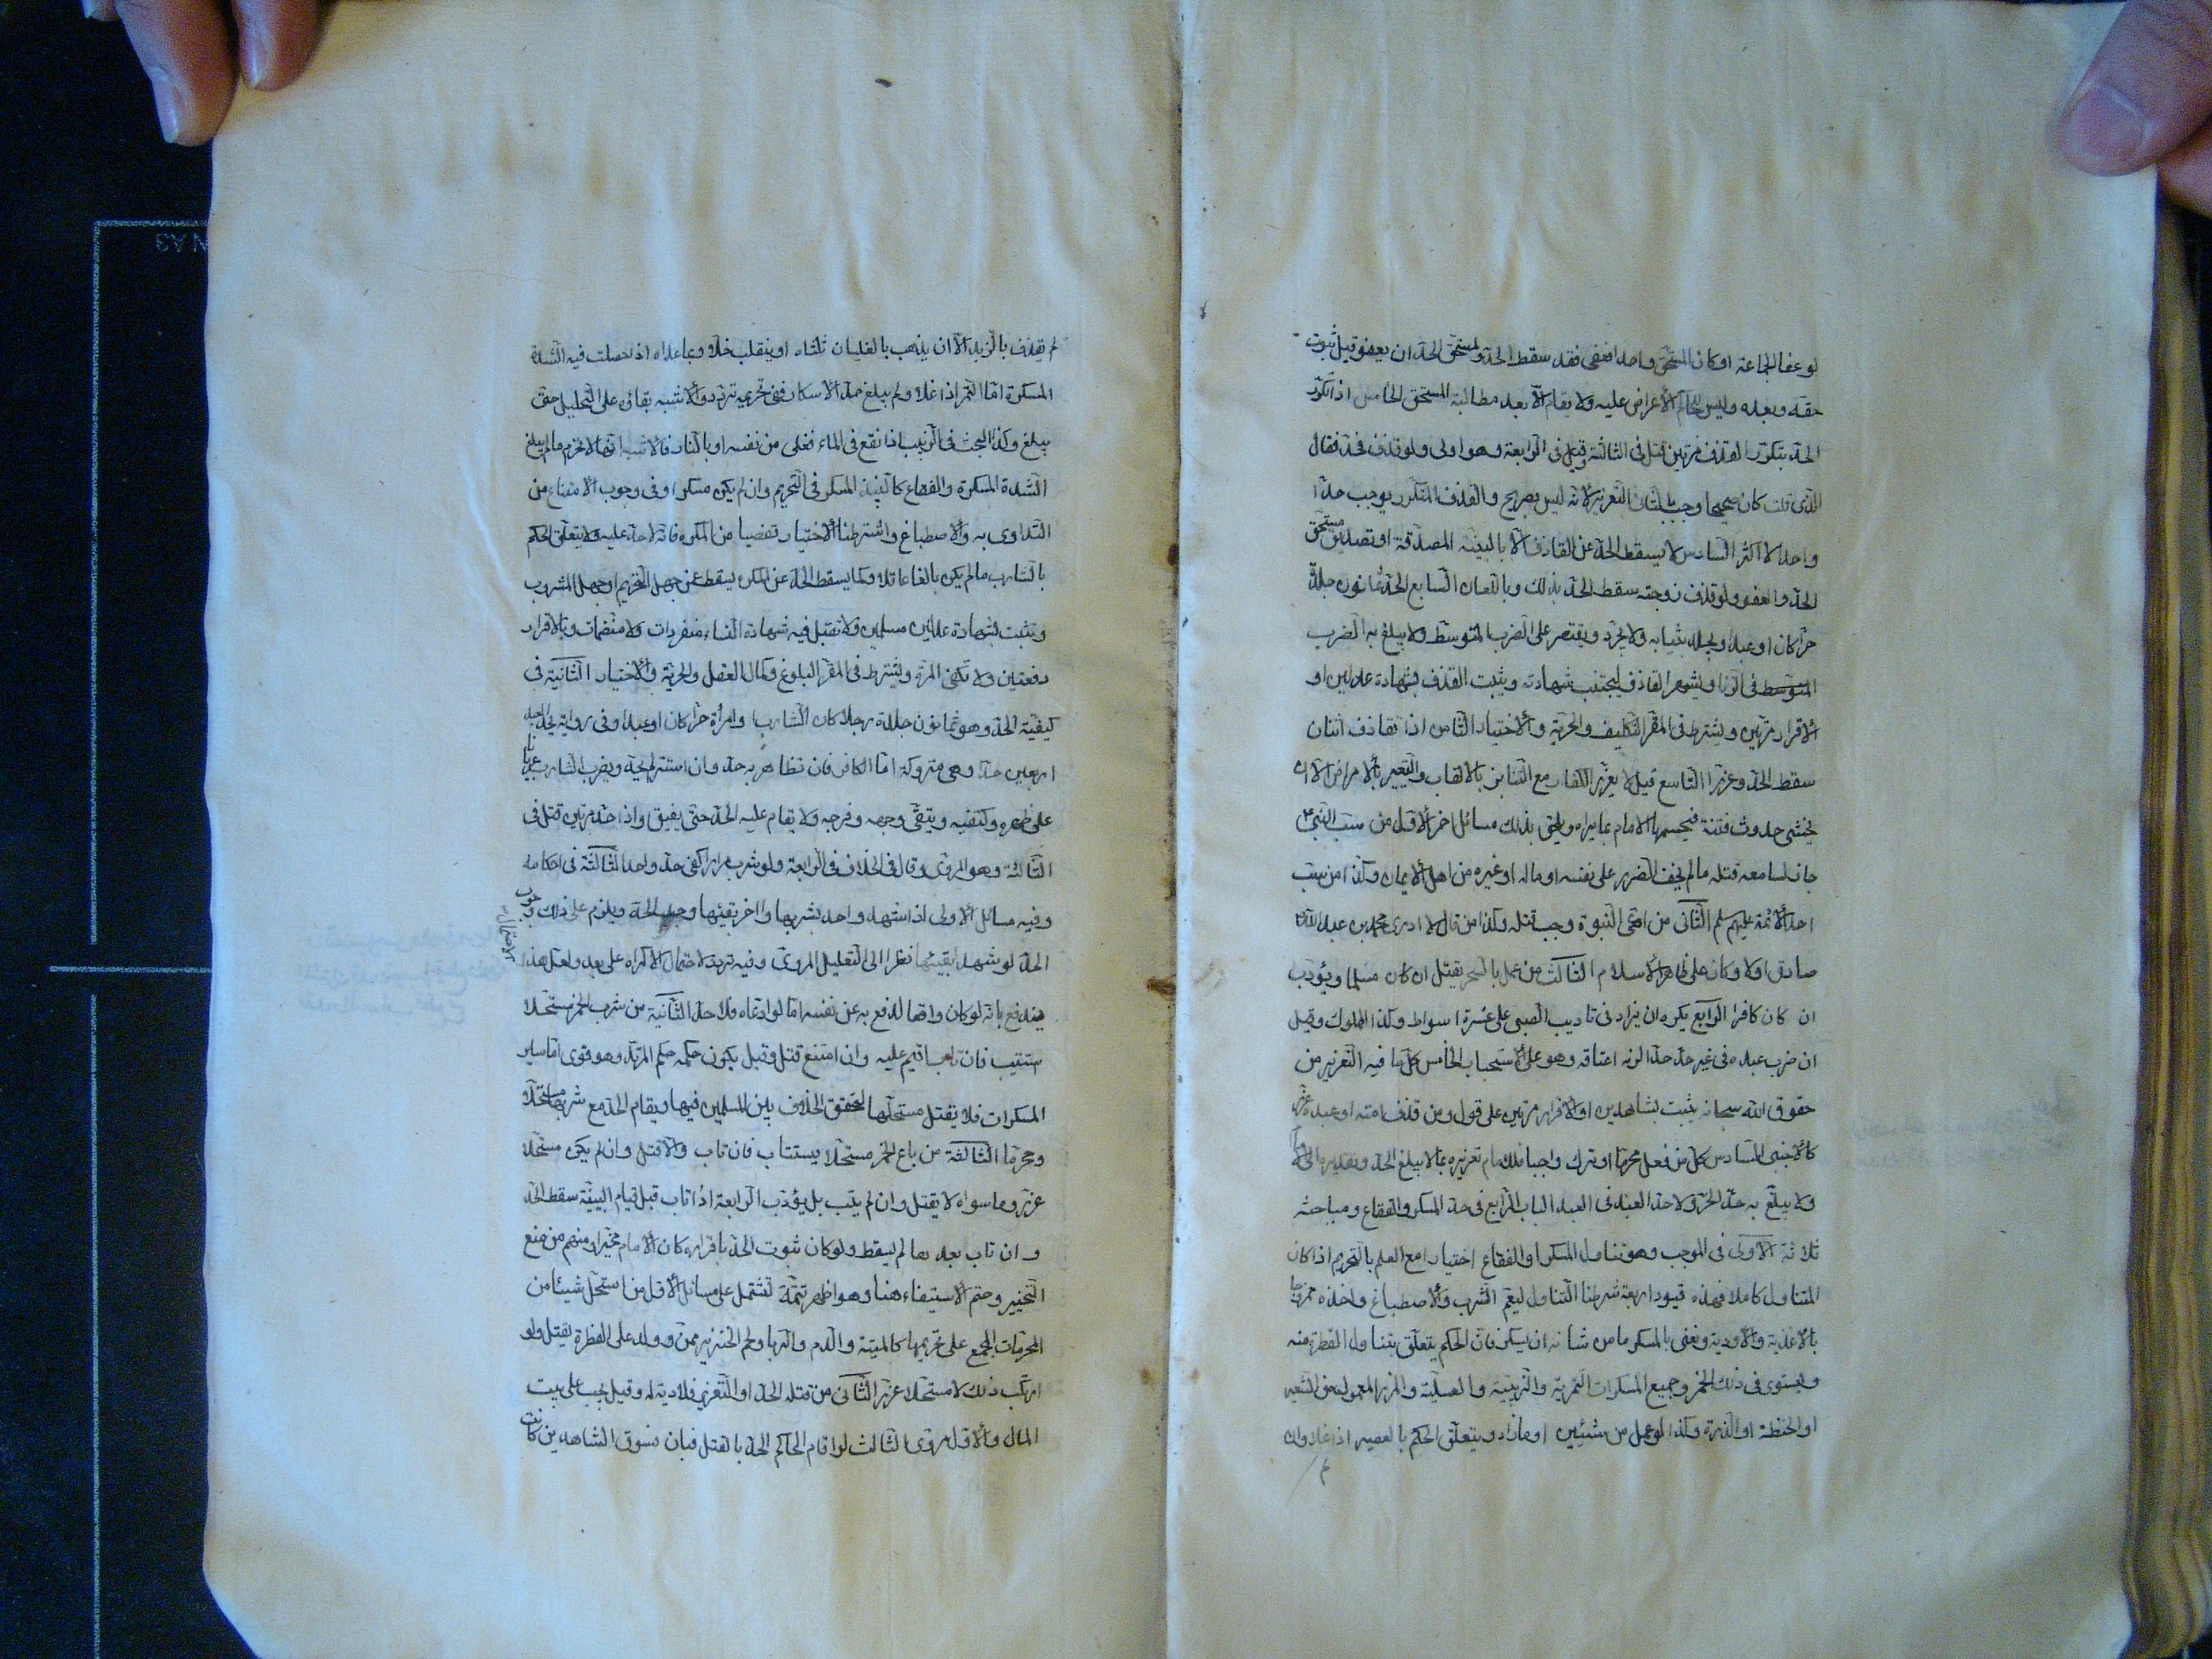 لو عفا الجماعة او كان المستحق واحدا فعفى فقد سقط الحد ولمستحق الحد ان يعفو قبل ثبوت
حقه وبعده وليس للحاكم الاعتراض عليه ولا يقام الا بعد مطالبة المستحق الخامس اذا تكرر
الحد بتكرر القذف مرتين قتل فى الثالثة وقيل فى الرابعة وهو اولى ولو قذف فحد فقال
الذى قلت كان صحيحا وجب بالثانى التعزير لانه ليس بصريح والقذف المتكرر يوجب حدا
واحدا لا اكثر السادس لا يسقط الحد عن القاذف الا بالبينة المصدقة او تصديق مستحق
الحد والعفو ولو قذف زوجته سقط الحد بذلك وباللعان السابع الحد ثمانون جلدة
حرا كان او عبدا ويجلد بثيابه ولا يجرد ويقتصر على الضرب المتوسط ولا يبلغ به الضرب
المتوسط فى الزنا ويشهر القاذف ليجتنب شهادته ويثبت القذف بشهادة عدلين او
الاقرار مرتين ويشترط فى المقر التكليف والحرية والاختيار الثامن اذا تقاذف اثنان
سقط الحد وعزرا التاسع قيل لا يعزر الكفار مع التنابز بالالقاب والتعيير بالامراض الا ان
يخشى حدوث فتنة فيحسمها الامام بما يراه ويلحق بذلك مسائل اخر الاول من سب النبى ص
جاز لسامعه قتله ما لم يخف الضرر على نفسه او ماله او غيره من اهل الايمان وكذا من سب
احد الائمة عليهم سلم الثانى من ادعى النبوة وجب قتله وكذا من قال لا ادرى محمد بن عبد الله
صادق اولا وكان على ظاهر الاسلام الثالث من عمل بالسحر يقتل ان كان مسلما ويؤدب
ان كان كافرا الرابع يكره ان يزاد فى تاديب الصبى على عشرة اسواط وكذا المملوك وقيل
ان ضرب عبده فى غير حد حدا لزمه اعتاقه وهو على الاستحباب الخامس كل ما فيه التعزير من
حقوق الله سبحانه يثبت بشاهدين او الاقرار مرتين على قول ومن قذف امته او عبده عزر
كالاجنبى السادس كل من فعل محرما او ترك واجبا فللامام تعزيره بما لا يبلغ الحد وتقديره الى الامام
ولا يبلغ به حد الحر ولا حد العبد فى العبد الباب الرابع فى حد المسكر والفقاع ومباحثه
ثلاثة الاول فى الموجب وهو تناول المسكر او الفقاع اختيارا مع العلم بالتحريم اذا كان
المتناول كاملا فهذه قيود اربعة شرطنا التناول ليعم الشرب والاصطباغ واخذه ممزوجا
بالاغذية والادوية ونعنى بالمسكر ما من شانه ان يسكر فان الحكم يتعلق بتناول القطرة منه
ويستوى فى ذلك الخمر وجميع المسكرات التمرية والزبيبية والعسلية والمزر المعمول من الشعير
او الحنطة او الذرة وكذا لو عمل من شيئين او ما زاد ويتعلق الحكم بالعصير اذا غلا وان
لم يقذف بالزبد الا ان يذهب بالغليان ثلثاه او ينقلب خلا وبما عداه اذا حصلت فيه الشدة
المسكرة اما التمر اذا غلا ولم يبلغ حد الاسكار ففى تحريمه تردد والاشبه بقاؤه على التحليل حتى
يبلغ وكذا البحث فى الزبيب اذا نقع فى الماء فغلى من نفسه او بالنار فالاشبه انه لا يحرم ما لم يبلغ
الشدة المسكرة والفقاع كالنبيذ المسكر فى التحريم وان لم يكن مسكرا وفى وجوب الامتناع من
التداوى به والاصطباغ واشترطنا الاختيار تفصيا من المكره فانه لا حد عليه ولا يتعلق الحكم
بالشارب ما لم يكن بالغا عاقلا وكما يسقط الحد عن المكره يسقط عمن جهل التحريم او جهل المشروب
ويثبت بشهادة عدلين مسلمين ولا تقبل فيه شهادة النساء منفردات ولا منضمات وبالاقرار
دفعتين ولا تكفى المرة ويشترط فى المقر البلوغ وكمال العقل والحرية والاختيار الثانية فى
كيفية الحد وهو ثمانون جلدة رجلا كان الشارب او امرأة حرا كان او عبدا وفى رواية يحد العبد
اربعين حدا وهى متروكة اما الكافر فان تظاهر به حد وان استتر لم يحد ويضرب الشارب عريانا
على ظهره وكتفيه ويتقى وجهه وفرجه ولا يقام عليه الحد حتى يفيق واذا حد مرتين قتل فى
الثالثة وهو المروى وقال فى الخلاف فى الرابعة ولو شرب مرارا كفى حد واحد الثالثة فى احكامه
وفيه مسائل الاولى اذا شهد واحد بشربها واخر بقيئها وجب الحد ويلزم على ذلك وجوب
الحد لو شهدا بقيئها نظرا الى التعليل المروى وفيه تردد لاحتمال الاكراه على بعد ولعل هذا الاحتمال
يندفع بانه لو كان واقعا لدفع به عن نفسه اما لو ادعاه فلا حد الثانية من شرب الخمر مستحلا
يستتيب فان تاب اقيم عليه وان امتنع قتل وقيل يكون حكمه حكم المرتد وهو قوى اما ساير
المسكرات فلا يقتل مستحلها لتحقق الخلاف بين المسلمين فيها ويقام الحد مع شربها مستحلا
ومحرما الثالثة من باع الخمر مستحلا يستتاب فان تاب والا قتل وان لم يكن مستحلا
عزر وما سواه لا يقتل وان لم يتب بل يؤدب الرابعة اذا تاب قبل قيام البينة سقط الحد
وان تاب بعدها لم يسقط ولو كان ثبوت الحد باقراره كان الامام مخيرا ومنهم من منع
التخيير وحتم الاستيفاء هنا وهو اظهر تتمة تشتمل على مسائل الاول من استحل شيئا من
المحرمات المجمع على تحريمها كالميتة والدم والربا ولحم الخنزير ممن ولد على الفطرة يقتل ولو
ارتكب ذلك لا مستحلا عزر الثانى من قتله الحد او التعزير فلا دية له وقيل يجب على بيت
المال والاول مروى الثالث لو اقام الحاكم الحد بالقتل فبان فسوق الشاهدين كانت